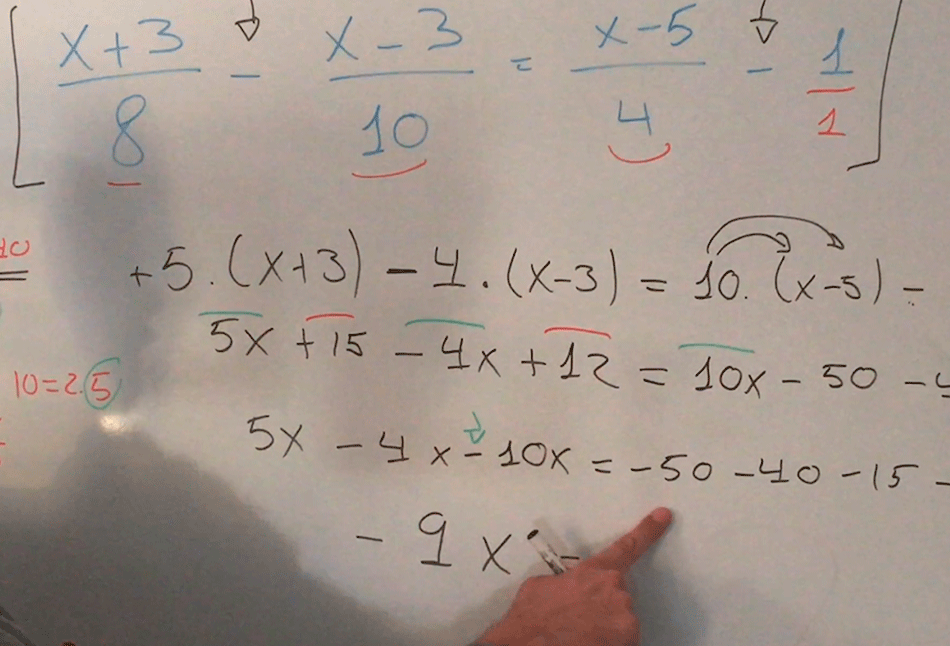 [ x+3/8 - x-3/10 = x-5/4 - 1/1 ]
+5.(x+3) - 4.(x-3) = 10.(x-5) -
5x +15 - 4x +12 = 10x - 50 - 4
10=2.5
5x - 4x - 10x = -50 -40 -15 -
- 9x =